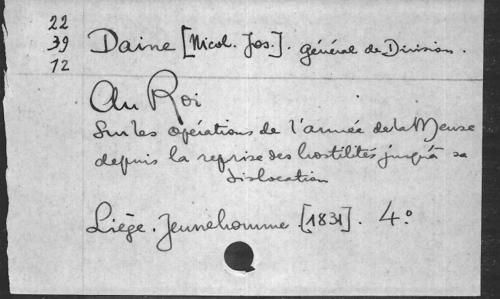 22
39 Daine [Nicol. Jos.]. général de Division.
12
Au Roi
Sur les opérations de l'armée de la Meuse
depuis la reprise des hostilités jusqu'à sa
dislocation
Liège. Jeunehomme. [1831]. 4º